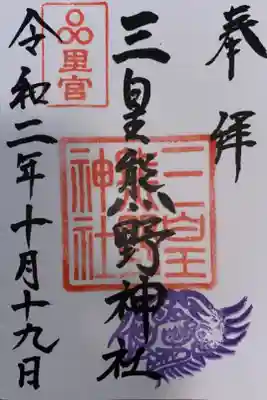 奉拝
三皇熊野神社
三皇熊野神社
令和二年十月十九日
里宮